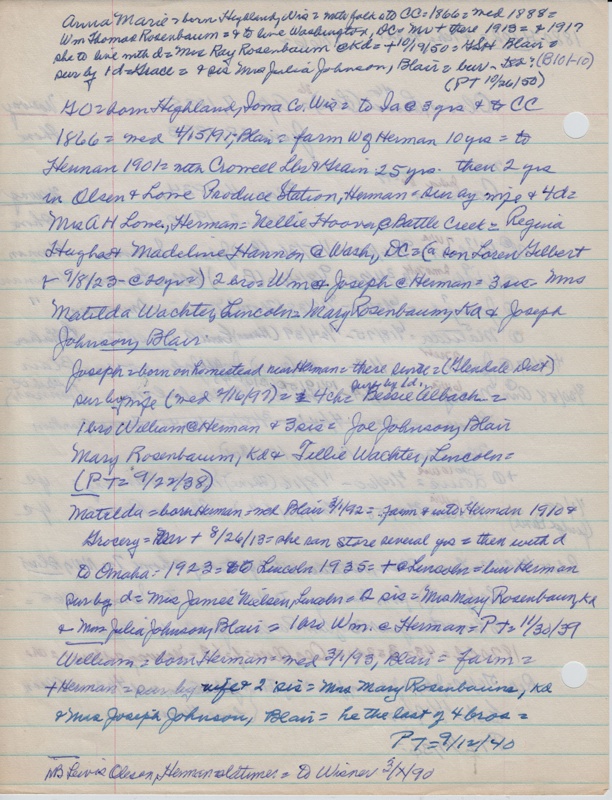 Anna Marie = born Highland, Wis = with folks to CC = 1866 = med 1888 =
Wm Thomas Rosenbaum = & to live Washington, DC. Mr + there 1913 = & 1917
she to live with d = Mrs Ray Rosenbaum @ Kd = + 10/19/50 = Blair =
sur by 1 d = Grace = & sis Mrs Julia Johnson, Blair = bur - (B101-10)
(PT 10/26/50)
GO = born Highland, Iona Co. Wis = to Ia @ 3 yrs & to CC
1866 = med 4/15/91, Blair = farm W of Herman 10 yrs = to
Herman 1901 = with Crowell Lbr & Grain 25 yrs. then 2 yrs
in Olsen & Lowe Produce Station, Herman = sur by wife & 4 d =
Mrs A H Lowe, Herman = Nellie Hoover @ Battle Creek = Regina
Hughes & Madeline Hannon @ Wash, DC = (a son Loren Gilbert
+ 9/8/23 - @ 20 yrs =) 2 bro = Wm & Joseph @ Herman = 3 sis = Mrs
Matilda Wachter, Lincoln = Mary Rosenbaum, Kd & Joseph
Johnson, Blair
Joseph = born on homestead near Herman = there since = (Glendale Dist)
sur by wife (med 2/16/97) = 4 ch = sur by 1 d, Bessie =
1 bro William @ Herman & 3 sis = Joe Johnson, Blair
Mary Rosenbaum, Kd & Tillie Wachter, Lincoln =
(PT = 9/22/38)
Matilda = born Herman = med Blair 3/1/92 = farm & into Herman 1910 &
Grocery = Mr + 8/26/13 = she ran store several yrs = then with d
to Omaha = 1923 = to Lincoln 1935 = + @ Lincoln = bur Herman
sur by d = Mrs James Nielsen, Lincoln = 2 sis = Mrs Mary Rosenbaum, Kd
& Mrs Julia Johnson, Blair = 1 bro Wm. @ Herman = PT = 11/30/39
William = born Herman = med 3/1/93, Blair = farm =
+ Herman = sur by wife & 2 sis = Mrs Mary Rosenbaum, Kd
& Mrs Joseph Johnson, Blair = he the last of 4 bros =
PT = 9/12/40
NB Lewis Oleson, Herman oldtimer = to Wisner 3/X/90